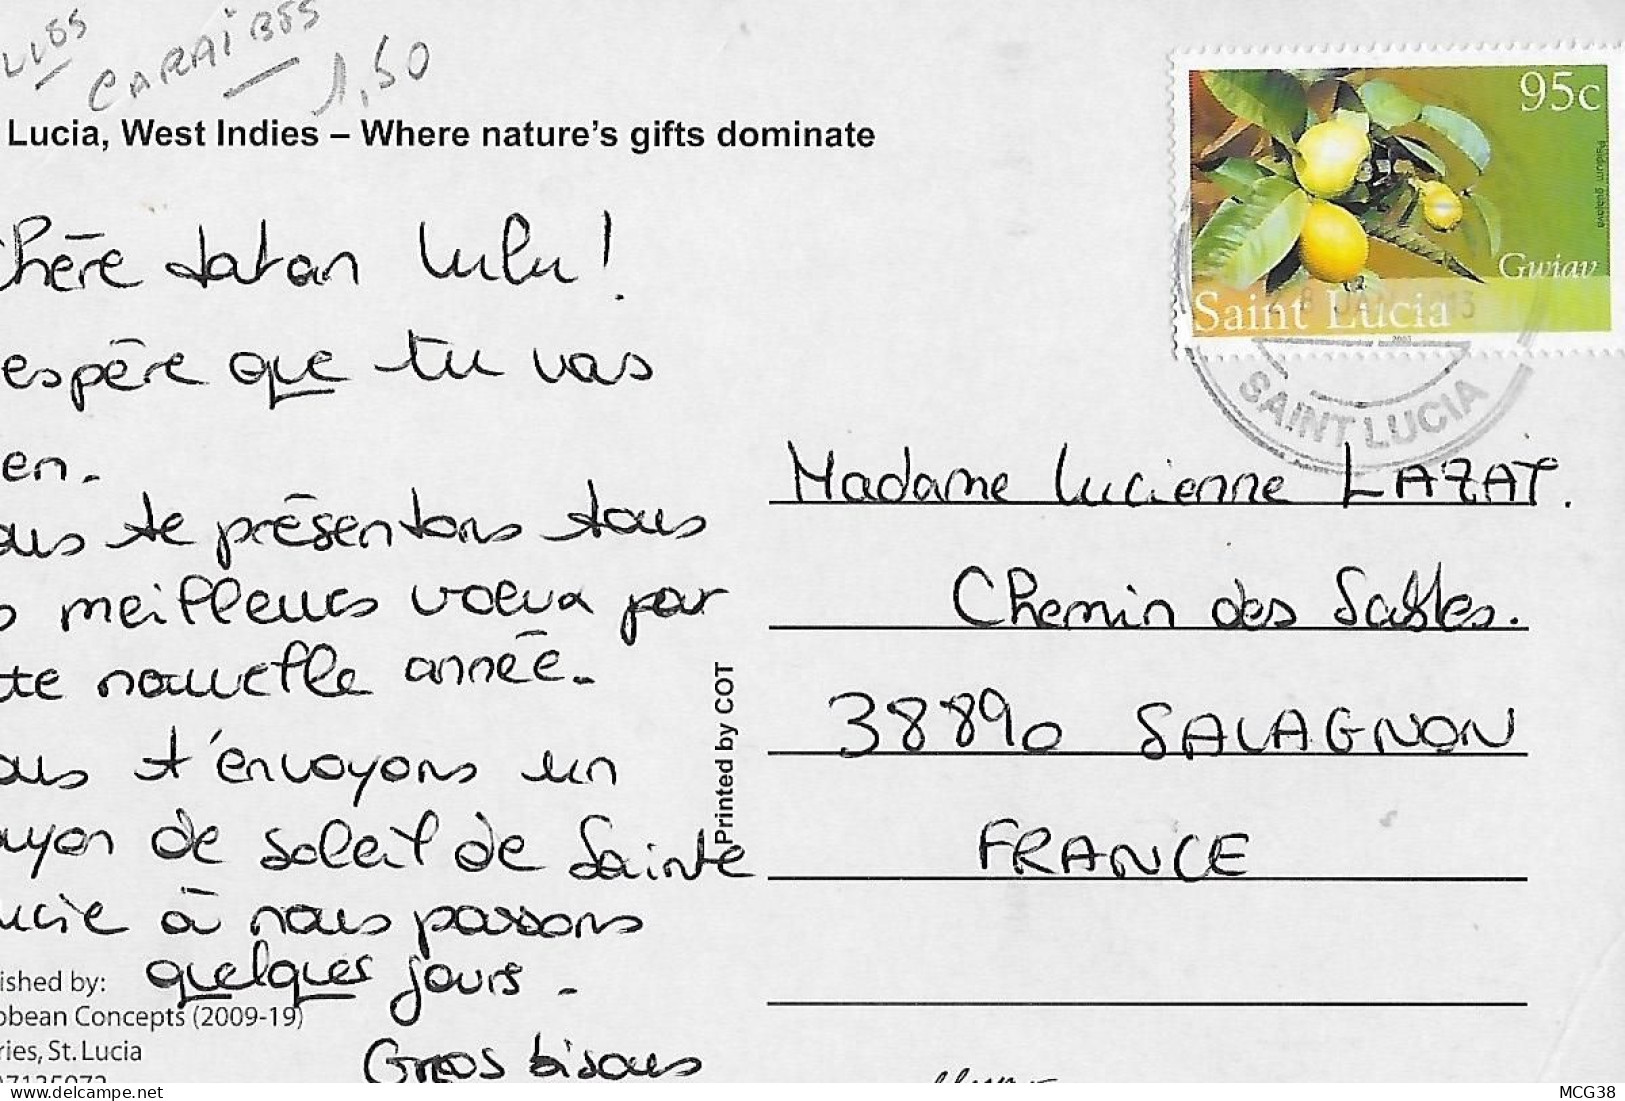 CARAïBES
1,50
Lucia, West Indies – Where nature's gifts dominate
95c
Psidium guajava
Gwiav
Saint Lucia
SAINT LUCIA
chère tatan Lulu!
espère que tu vas
en.
ous te présentons tous
s meilleurs voeux par
te nouvelle année.
ous t'envoyons un
ayon de soleil de Sainte
ucie à nous passons
quelques jours.
Gros bisous
Madame Lucienne LAZAT.
Chemin des Sables.
38890 SALAGNON
FRANCE
Printed by COT
ished by:
bbean Concepts (2009-19)
ries, St. Lucia
MCG38